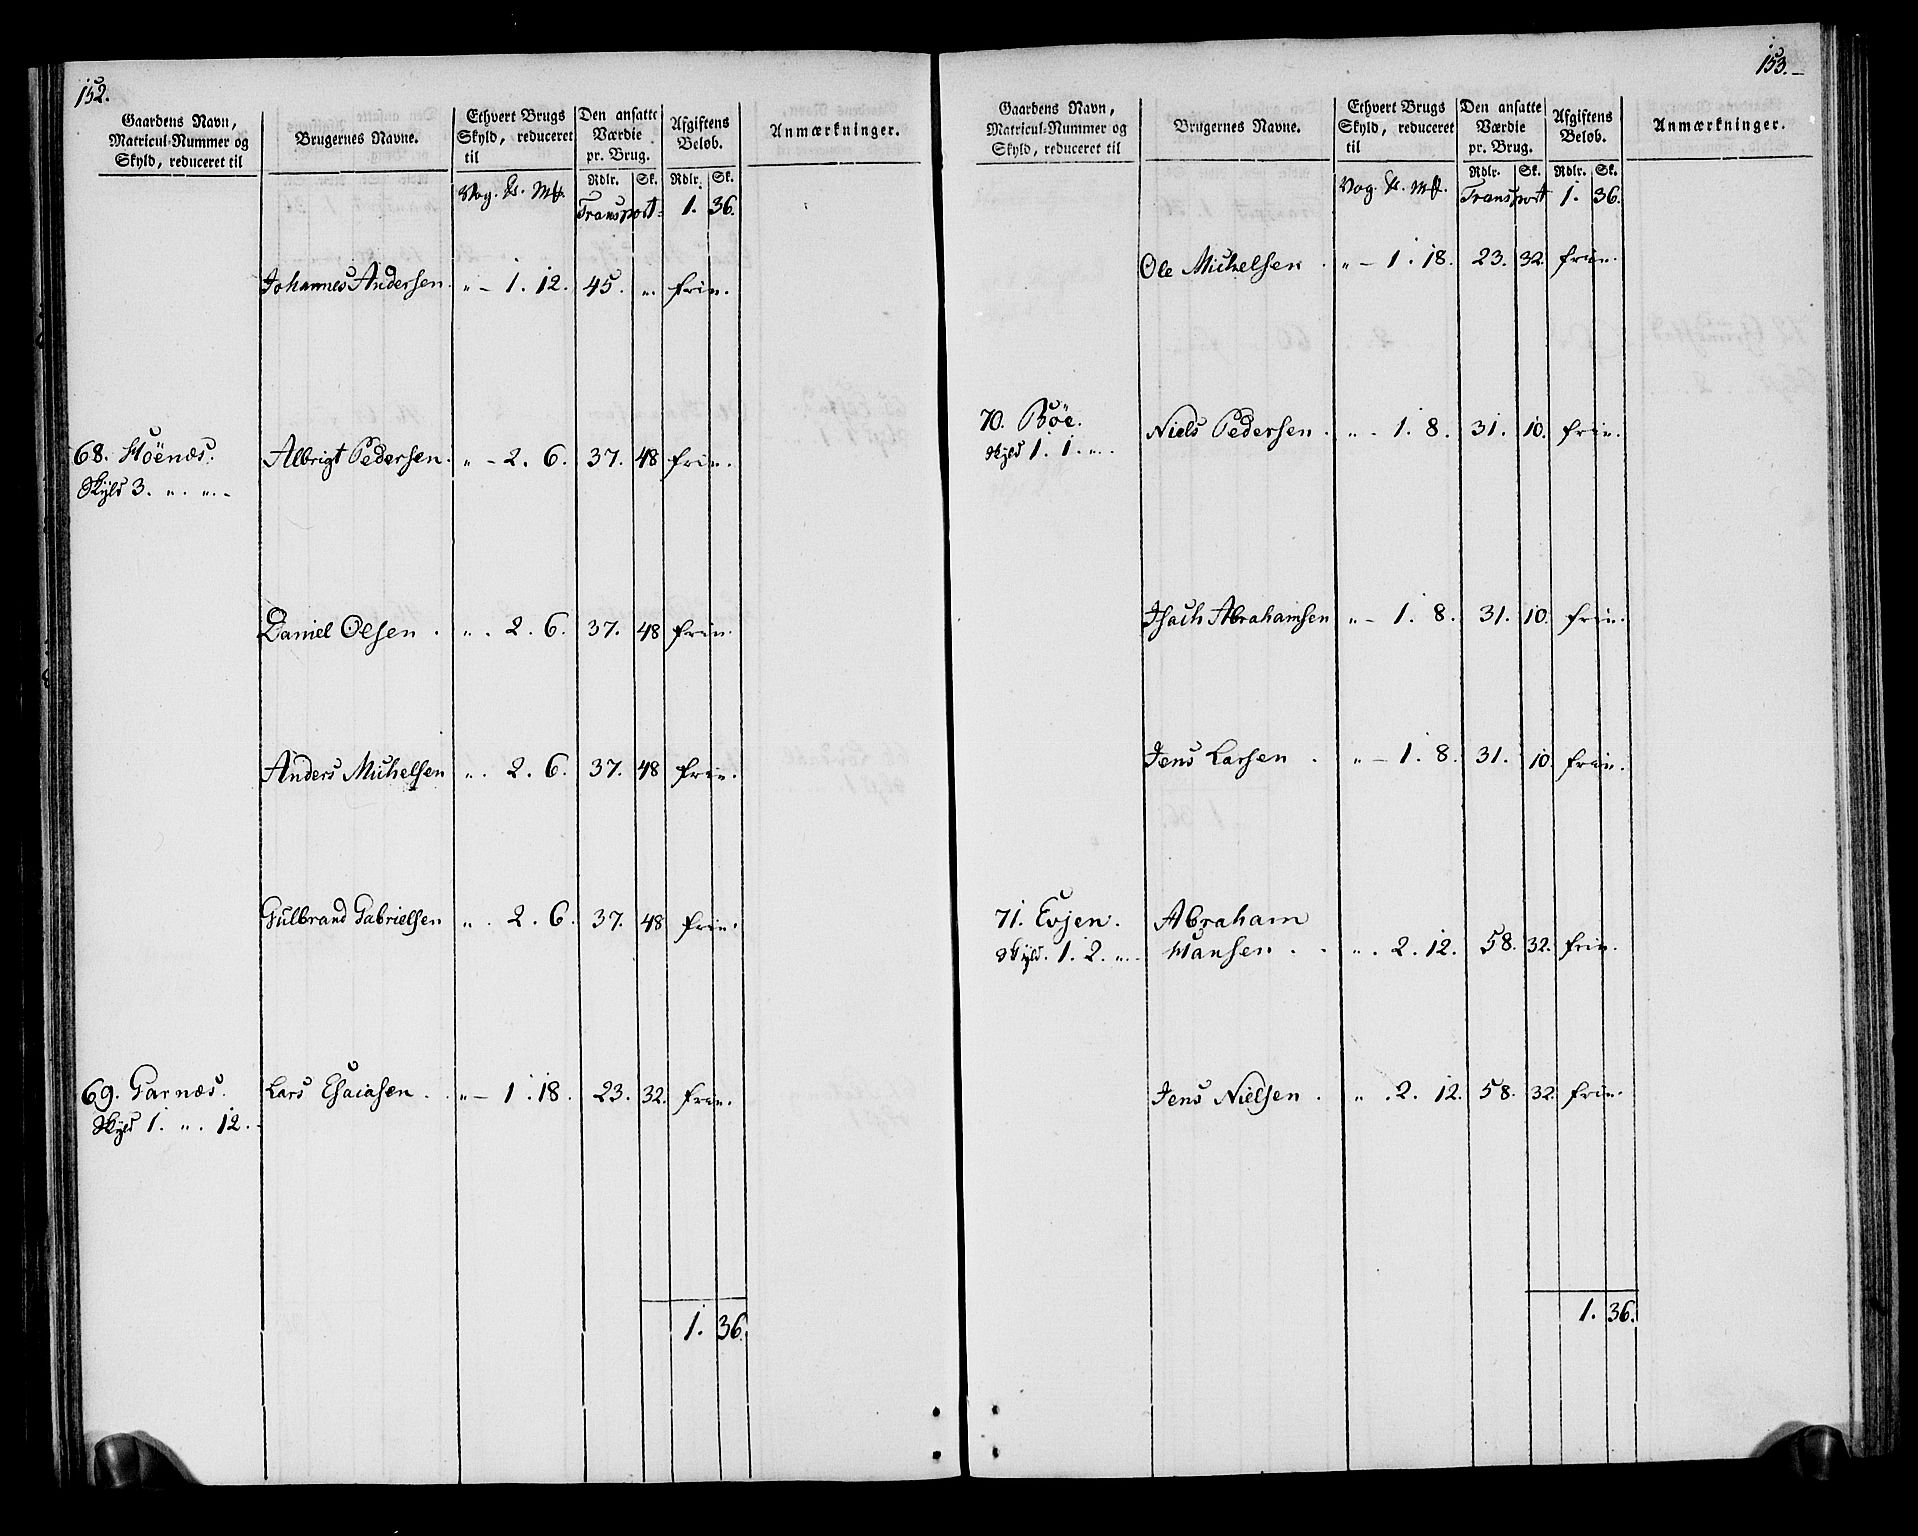 152.
Gaardens Navn, Matricul-Nummer og Skyld, reduceret til
Brugernes Navne.
Ethvert Brugs Skyld, reduceret til
Den ansatte Værdie pr. Brug.
Afgiftens Beløb.
Anmærkninger.
Rdlr. Sk. Rdlr. Sk.
Vog. Transport 1. 36.
Johannes Andersen. „ - 1. 12. 45. „. frin.
68. Höenæs. Albrigt Pedersen. „ - 2. 6. 37. 48 frin.
Skyld 3. „. „. -
Daniel Olsen . „ . 2. 6. 37. 48 frin.
Anders Michelsen „ . 2. 6. 37. 48 frin.
Gulbrand Gabrielsen „ . 2. 6. 37. 48 frin.
69. Garnæs. Lars Esaiasen . „ - 1. 18. 23. 32. frin.
Skyld 1. „. 12. -
1. 36.
153. -
Gaardens Navn, Matricul-Nummer og Skyld, reduceret til
Brugernes Navne.
Ethvert Brugs Skyld, reduceret til
Den ansatte Værdie pr. Brug.
Afgiftens Beløb.
Anmærkninger.
Rdlr. Sk. Rdlr. Sk.
Vog. Transport 1. 36.
Ole Michelsen . „ - 1. 18. 23. 32. frin.
70. Böe. Niels Pedersen . „ - 1. 8. 31. 10. frin.
Skyld 1. 1. „. -
Isach Abrahamsen „ - 1. 8. 31. 10. frin.
Jens Larsen . „ - 1. 8. 31. 10. frin.
71. Evjen. Abraham
Skyld. 1. 2. „. - Hansen . . „ . 2. 12. 58. 32. frin.
Jens Nielsen . „ . 2. 12. 58. 32. frin.
1. 36.